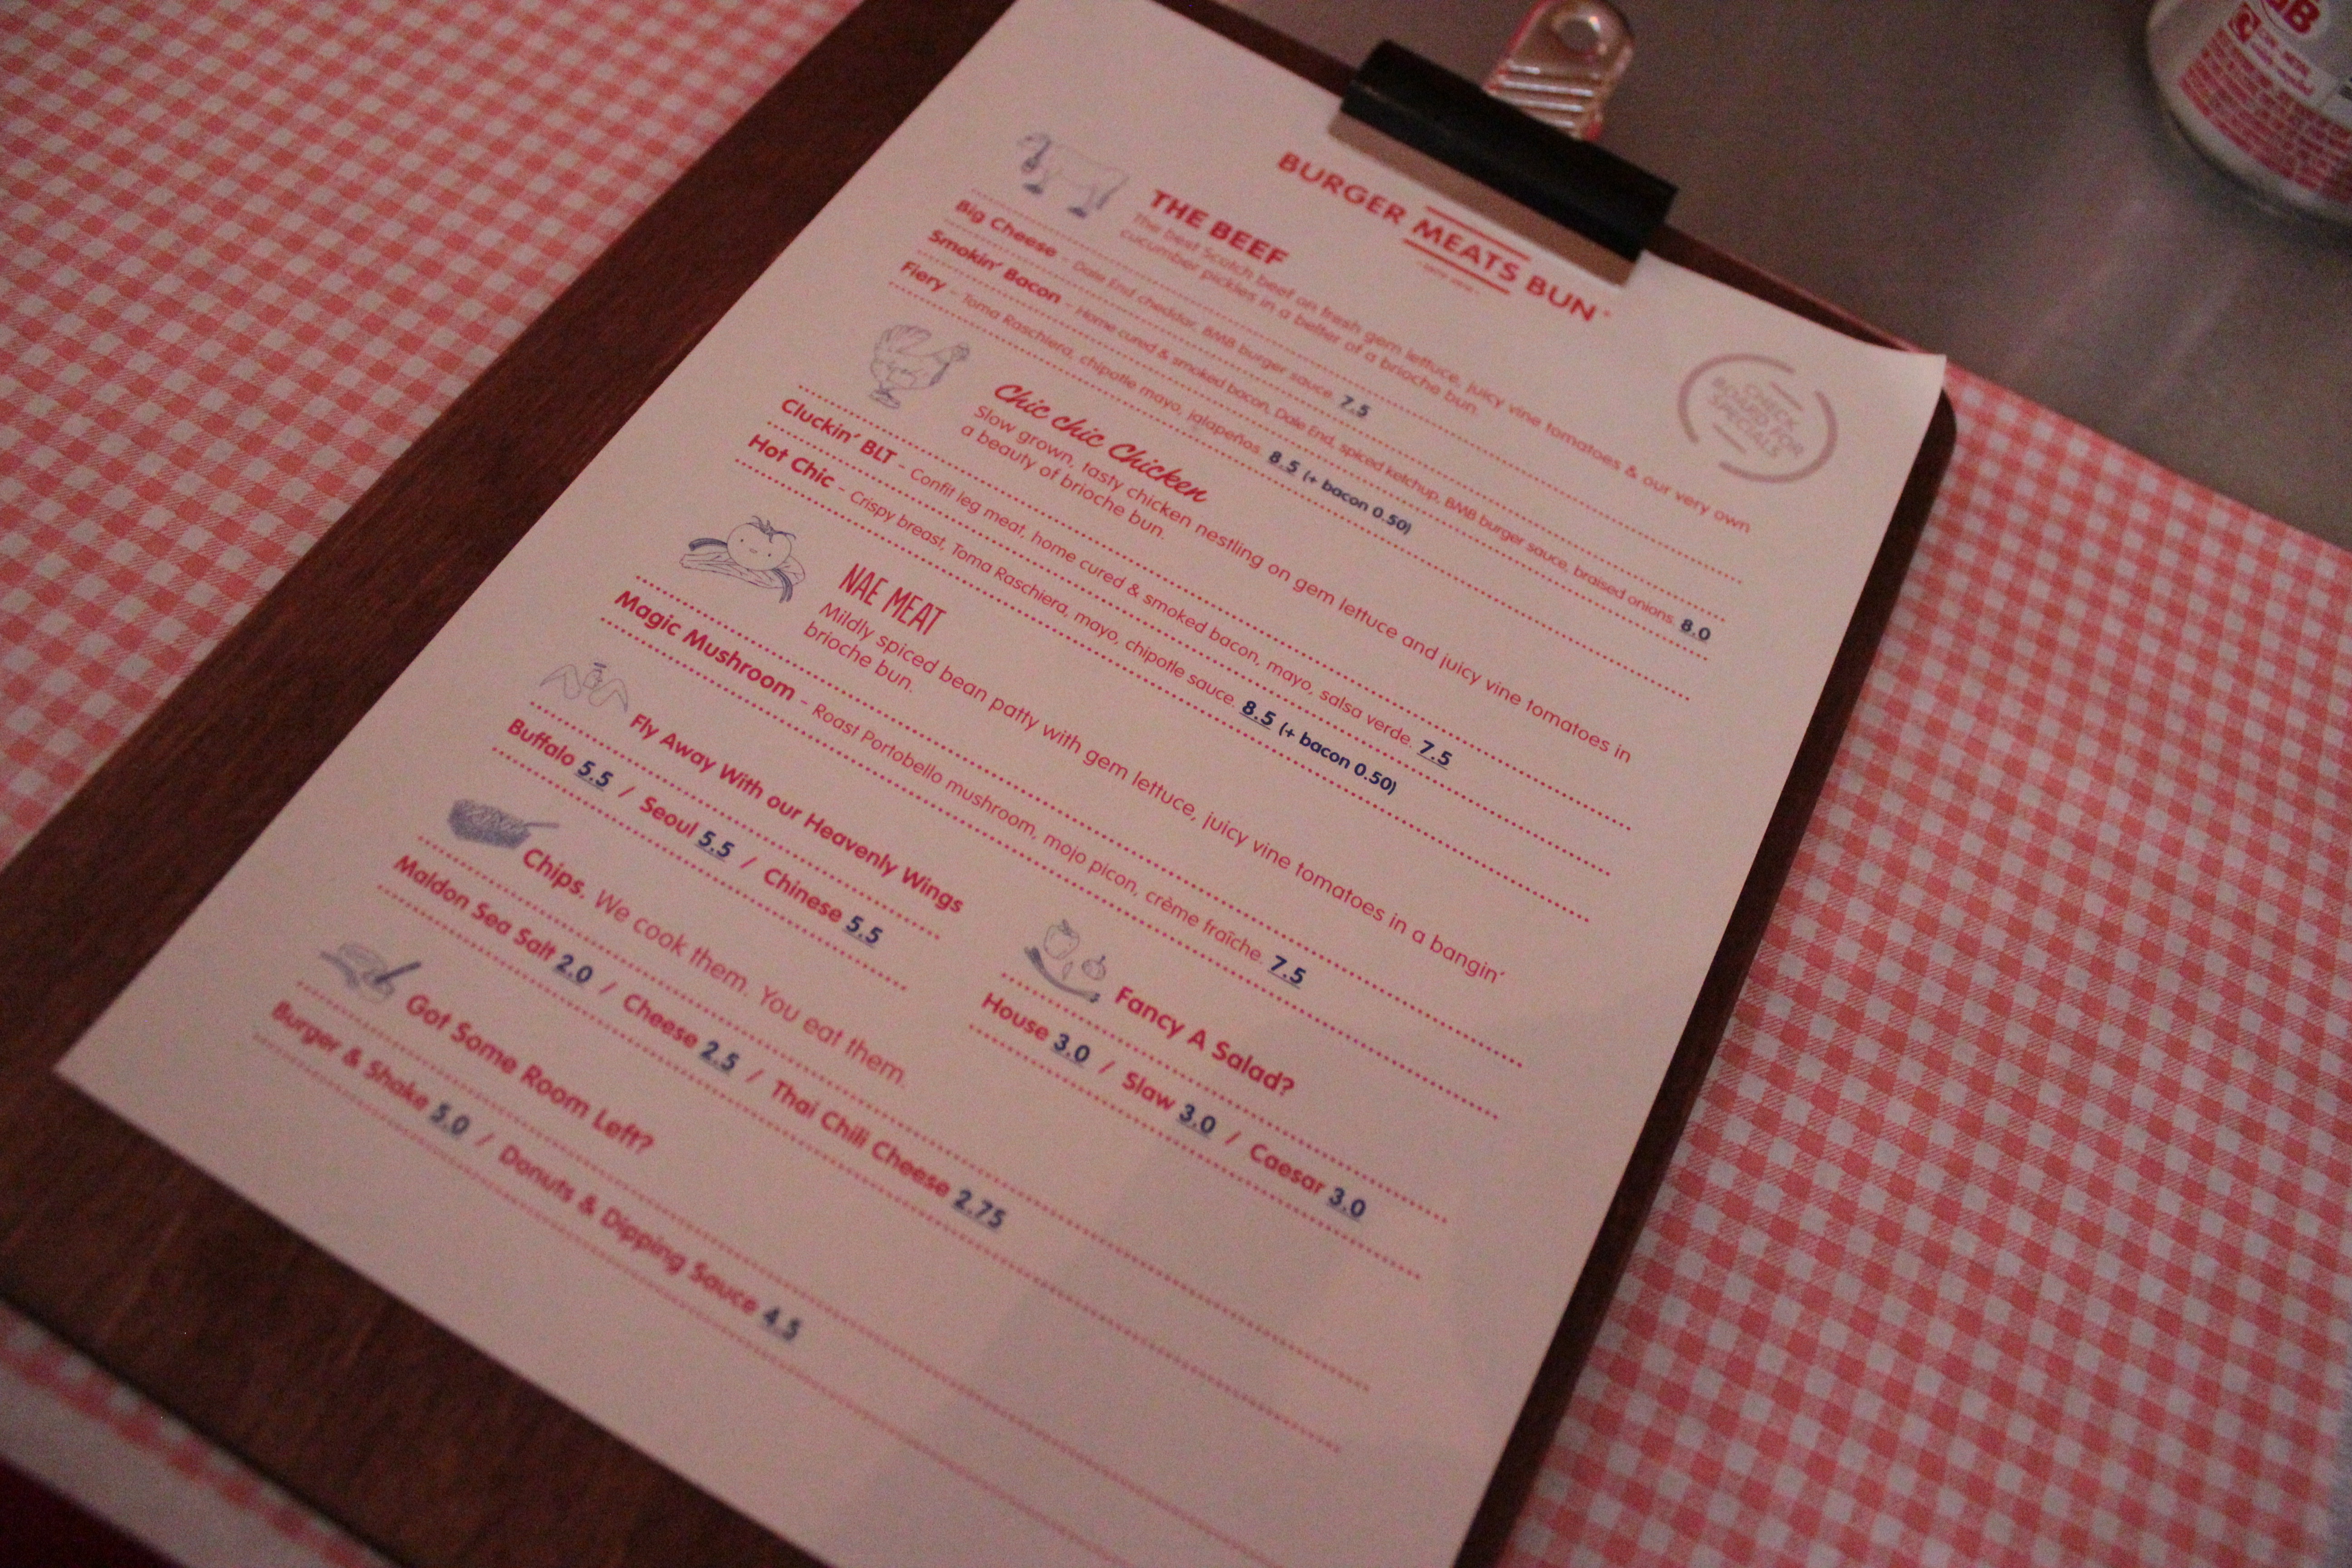 BURGER MEATS BUN
CHECK
BOARD FOR
SPECIALS
THE BEEF
The best Scotch beef on fresh gem lettuce, juicy vine tomatoes & our very own
cucumber pickles in a belter of a brioche bun.
Big Cheese - Dale End cheddar, BMB burger sauce. 7.5
Smokin' Bacon - Home cured & smoked bacon, Dale End, spiced ketchup, BMB burger sauce, braised onions. 8.0
Fiery - Toma Raschiera, chipotle mayo, jalapeños. 8.5 (+ bacon 0.50)
Chic chic Chicken
Slow grown, tasty chicken nestling on gem lettuce and juicy vine tomatoes in
a beauty of brioche bun.
Cluckin' BLT - Confit leg meat, home cured & smoked bacon, mayo, salsa verde. 7.5
Hot Chic - Crispy breast, Toma Raschiera, mayo, chipotle sauce. 8.5 (+ bacon 0.50)
NAE MEAT
Mildly spiced bean patty with gem lettuce, juicy vine tomatoes in a bangin'
brioche bun.
Magic Mushroom - Roast Portobello mushroom, mojo picon, crème fraîche. 7.5
Fly Away With our Heavenly Wings
Buffalo 5.5 / Seoul 5.5 / Chinese 5.5
Fancy A Salad?
House 3.0 / Slaw 3.0 / Caesar 3.0
Chips. We cook them. You eat them.
Maldon Sea Salt 2.0 / Cheese 2.5 / Thai Chili Cheese 2.75
Got Some Room Left?
Burger & Shake 5.0 / Donuts & Dipping Sauce 4.5